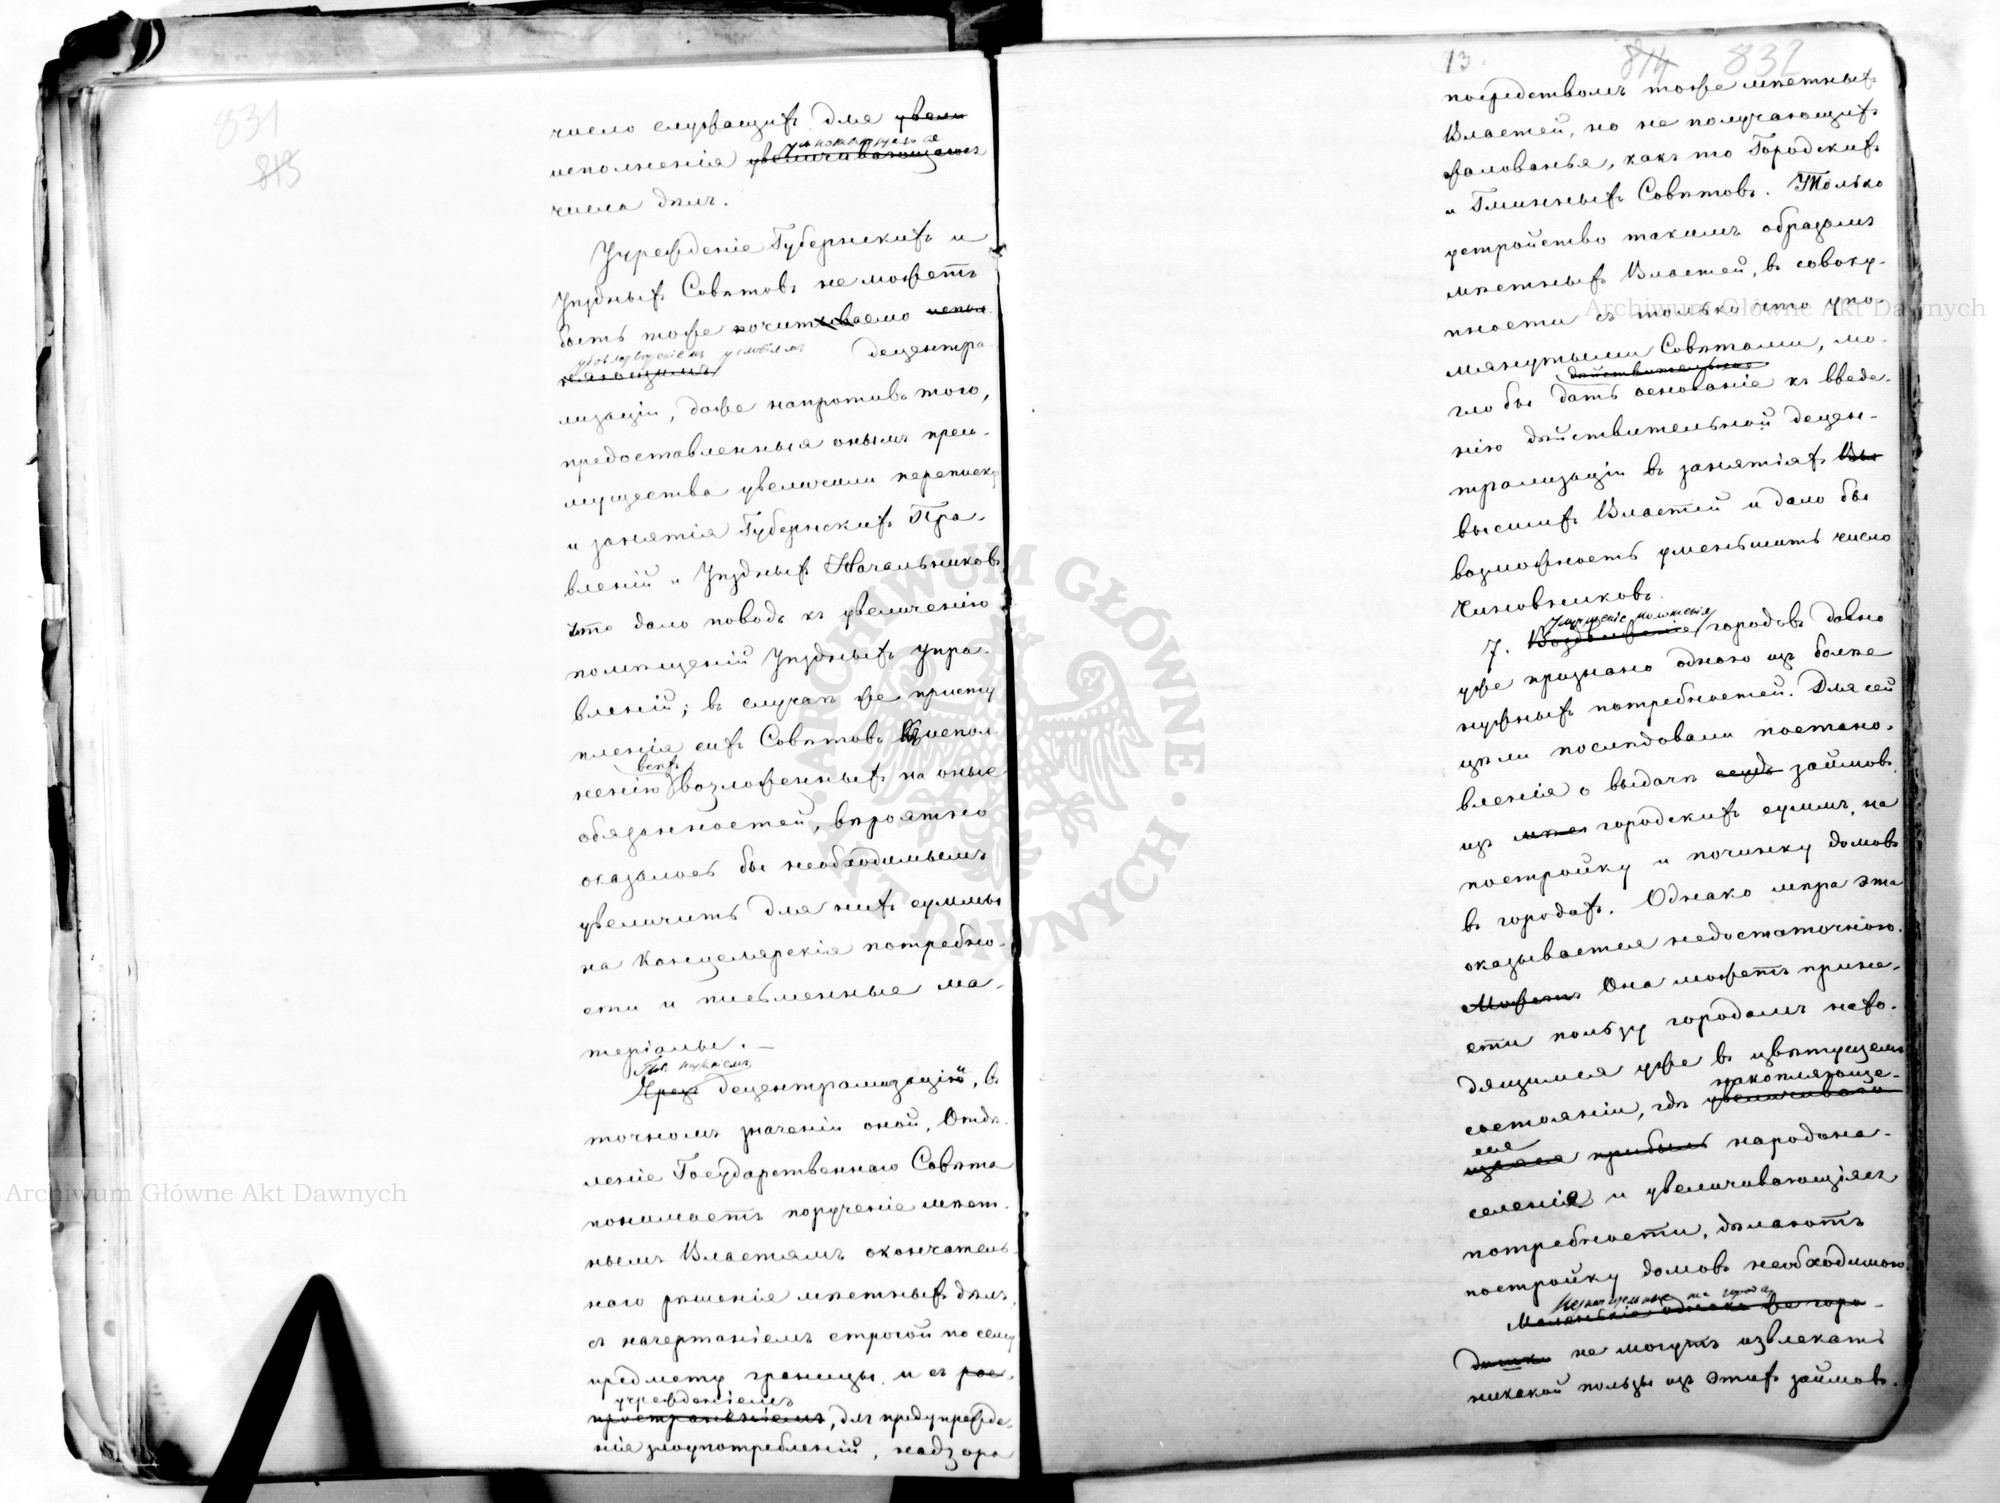 831
813
число служащихъ для увели
умножающегося
исполненія увеличивающагося
числа дѣлъ.
Учрежденіе Губернскихъ и
Уѣздныхъ Совѣтовъ не можетъ
быть тоже почитаемо испол
условіямъ
няющимъ децентра-
лизаціи, даже напротивъ того,
предоставленныя онымъ преи-
мущества увеличили переписку
и занятія Губернскихъ Пра-
вленій и Уѣздныхъ Начальниковъ
что дало поводъ къ увеличенію
помѣщеній Уѣздныхъ Упра-
вленій; въ случаѣ же присту
пленія сихъ Совѣтовъ къ испол-
всѣхъ
ненію возложенныхъ на оные
обязанностей, вѣроятно
оказалось бы необходимымъ
увеличить для нихъ суммы
на Канцелярскія потребно-
сти и письменные ма-
теріалы. —
Подъ
Чрезъ децентрализаціей, въ
точномъ значеніи оной, Отдѣ-
леніе Государственнаго Совѣта
понимаетъ порученіе мѣст-
нымъ Властямъ окончатель-
наго рѣшенія мѣстныхъ дѣлъ,
съ начертаніемъ строгой по сему
предмету границы и съ рас-
учрежденіемъ
пространеніемъ, для предупрежде-
нія злоупотребленій, надзора
13.
814 832
посредствомъ тоже мѣстныхъ
Властей, но не получающихъ
жалованья, какъ то Городскихъ
и Гминныхъ Совѣтовъ. Только
устройство такимъ образомъ
мѣстныхъ Властей, въ совоку-
пности съ только что упо-
мянутыми Совѣтами, мо-
дѣйствительное
гло бы дать основаніе къ введе-
нію дѣйствительной децен-
трализаціи въ занятіяхъ Вы
высшихъ Властей и дало бы
возможность уменьшить число
Чиновниковъ.
Улучшеніе положенія
7. Возвышеніе городовъ давно
уже признано одною изъ болѣе
нужныхъ потребностей. Для сей
цѣли послѣдовали постано-
вленія о выдачѣ ссудъ займовъ
изъ городскихъ суммъ, на
постройку и починку домовъ
въ городахъ. Однако мѣра эта
оказывается недостаточною.
Можетъ Она можетъ прине-
сти пользу городамъ нахо-
дящимся уже въ цвѣтущемъ
накопляюще-
состояніи, гдѣ увеличиваю
еся
щаяся прибыль народона-
селеніе и увеличивающіяся
потребности, дѣлаютъ
постройку домовъ необходимою.
Незначительные же города
Маленькіе однако же горо-
дишки не могутъ извлекать
никакой пользы изъ этихъ займовъ.